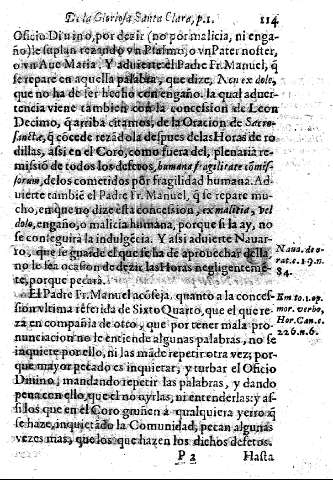 De la Gloriosa Santa Clara, p.1. 114
Oficio Diuino, por dezir (no por malicia, ni enga-
ño) le suplan rezando vn Psalmo, o vn Pater noster,
o vn Aue Maria. Y aduierte el Padre Fr. Manuel, q̃
se repare en aquella palabra, que dize, Non ex dolo,
que no ha de ser hecho con engaño. la qual aduer-
tencia viene tambien con la concession de Leon
Decimo, q̃ arriba citamos, de la Oracion de Sacro-
sanctæ, q̃ cõcede rezãdola despues de las Horas de ro
dillas, assi en el Coro, como fuera del, plenaria re-
missiõ de todos los defetos, humana fragilitate cõmis-
sorum, de los cometidos põr fragilidad humana. Ad
uierte tambiẽ el Padre Fr. Manuel, q̃ se repare mu-
cho, en que no dize esta concession, ex malitia, vel
dolo, engaño, o malicia humana, porque si la ay, no
se conseguira la indulgẽcia. Y assi aduierte Nauar-
ro, que se guarde el que se ha de aprouechar della,
no le sea ocasion de dezir las Horas negligentemẽ-
te, porque pecarà.
Naua. de o-
rat. c. 19. n.
84.
El Padre Fr. Manuel acõseja, quanto a la conces-
sion vltima referida de Sixto Quarto, que el que re-
za en compañia de otro, que por tener mala pro-
nunciacion no le entiende algunas palabras, no se
inquiete por ello, ni las mãde repetir otra vez; por-
que mayor pecado es inquietar, y turbar el Oficio
Diuino, mandando repetir las palabras, y dando
pena con ello, que el no oyrlas, ni entenderlas: y as-
si los que en el Coro gruñen a qualquiera yerro q̃
se haze, inquietãdo la Comunidad, pecan algunas
vezes mas, que los que hazen los dichos defetos.
Em to. 1. ep.
mor. verbo,
Hor. Can. c.
226. n. 6.
P 2 Hasta